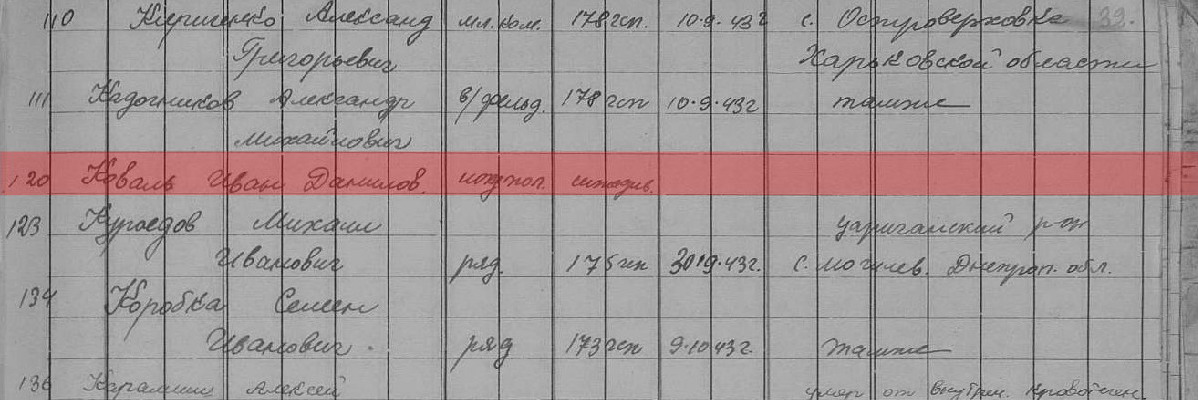 110 Кириленко Александ мл. ком. 178 гсп. 10.9.43г с. Островерховка 39.
Григорьевич Харьковской области
111 Кадочников Александр в/фельд. 178 гсп 10.9.43г также
Михайлович
120 Коваль Иван Данилов.
123 Куроедов Михаил царичанский р-н
Иванович ряд. 175 гсп 30.9.43г. с. Могилев. Днепроп. обл.
134 Коробка Семен
Иванович. ряд 173 гсп 9.10.43г. также
136 Алексей умер от внутрен. кровотечен.